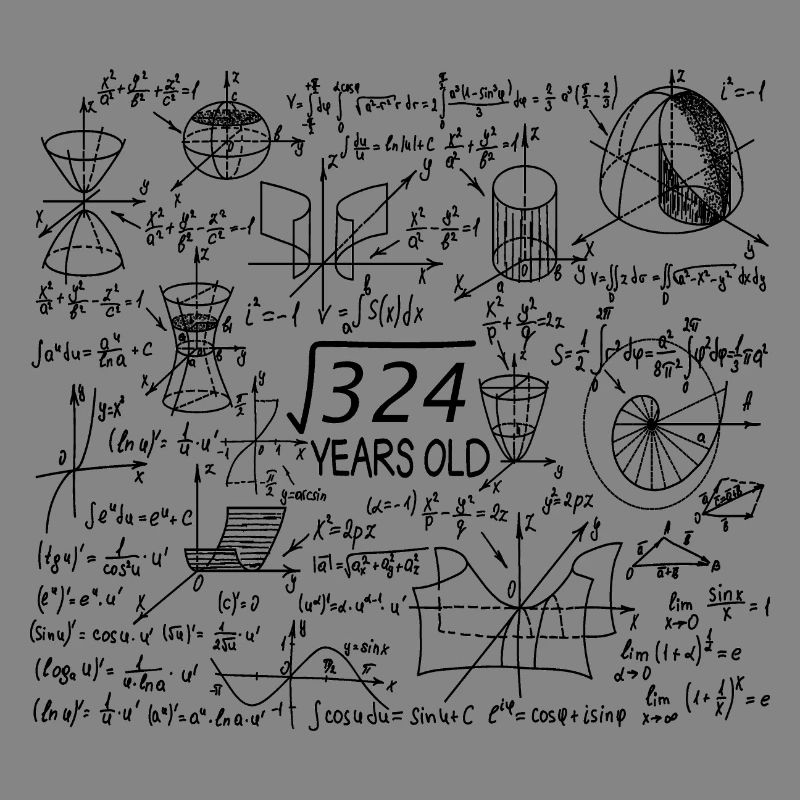 x²/a² + y²/b² + z²/c² = 1
V = ∫_{-π/2}^{+π/2} dφ ∫_0^{a cosφ} √(a²-r²) r dr = 2 ∫_0^{π/2} a³(1-sin³φ)/3 dφ = 2/3 a³(π/2 - 2/3)
i² = -1
∫ du/u = ln|u| + C
x²/a² + y²/b² = 1
x²/a² + y²/b² - z²/c² = -1
x²/a² - y²/b² = 1
V = ∬_D z dσ = ∬_D √(a²-x²-y²) dxdy
x²/a² + y²/b² - z²/c² = 1
i² = -1
V = ∫_a^b S(x)dx
x²/p + y²/q = 2z
∫ aᵘdu = aᵘ/ln a + C
S = 1/2 ∫_0^{2π} r²dφ = a²/8π² ∫_0^{2π} φ²dφ = 1/3 πa²
√324
YEARS OLD
y=x³
(ln u)' = 1/u · u'
y=arcsin
∫ eᵘdu = eᵘ + C
x² = 2pz
(α=-1)
x²/p - y²/q = 2z
y² = 2pz
(tg u)' = 1/cos²u · u'
|a̅| = √(aₓ² + a_y² + a_z²)
(eᵘ)' = eᵘ · u'
(c)' = 0
(u^α)' = α · u^{α-1} · u'
lim_{x→0} sin x/x = 1
(sin u)' = cos u · u'
(√u)' = 1/2√u · u'
y=sin x
lim_{α→0} (1+α)^{1/2} = e
(logₐ u)' = 1/u·ln a · u'
lim_{x→∞} (1 + 1/x)^x = e
(ln u)' = 1/u · u'
(aᵘ)' = aᵘ · ln a · u'
∫ cos u du = sin u + C
e^{iφ} = cosφ + i sinφ